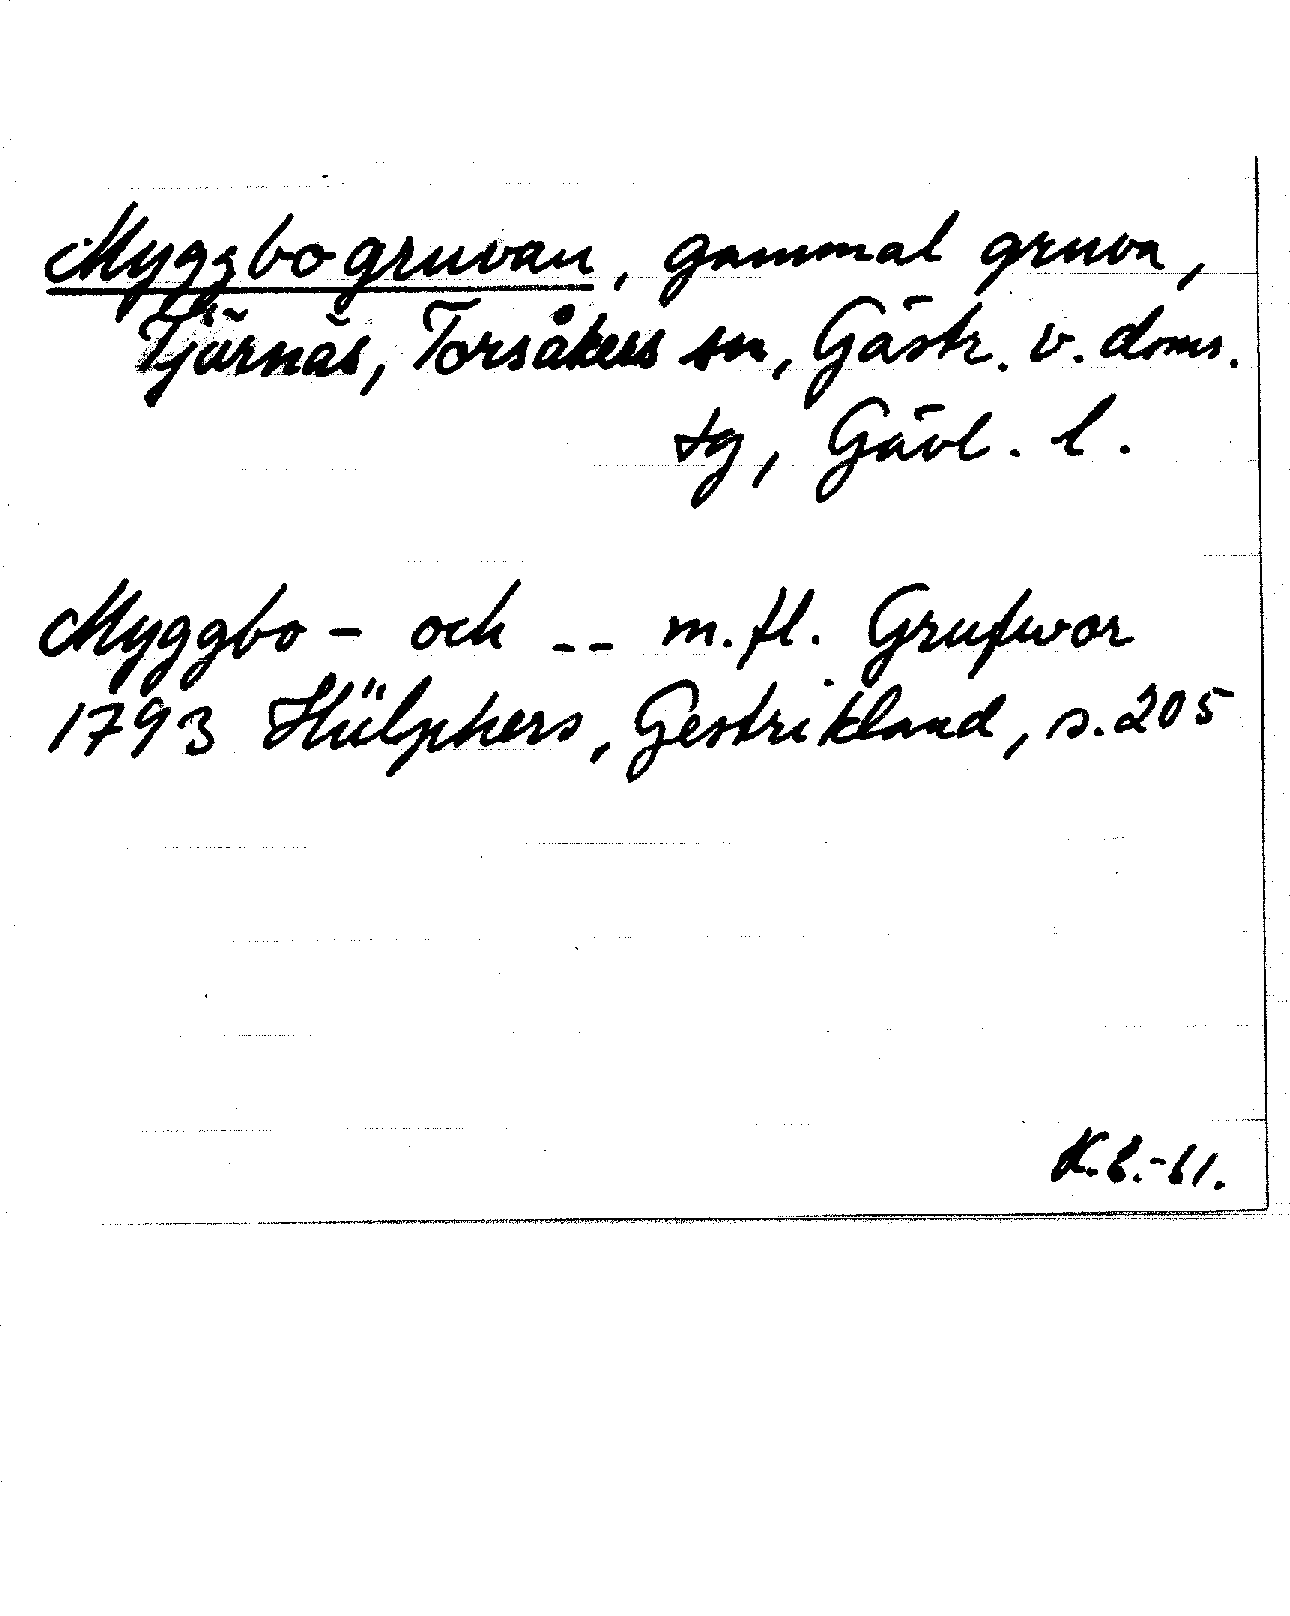 Myggbogruvan, gammal gruva,
Tjärnäs, Torsåkers sn, Gästr. v. doms.
tg, Gävl. l.
Myggbo- och -- m.fl. Grufwor
1793 Hülphers, Gestrikland, s.205
K.L.-61.